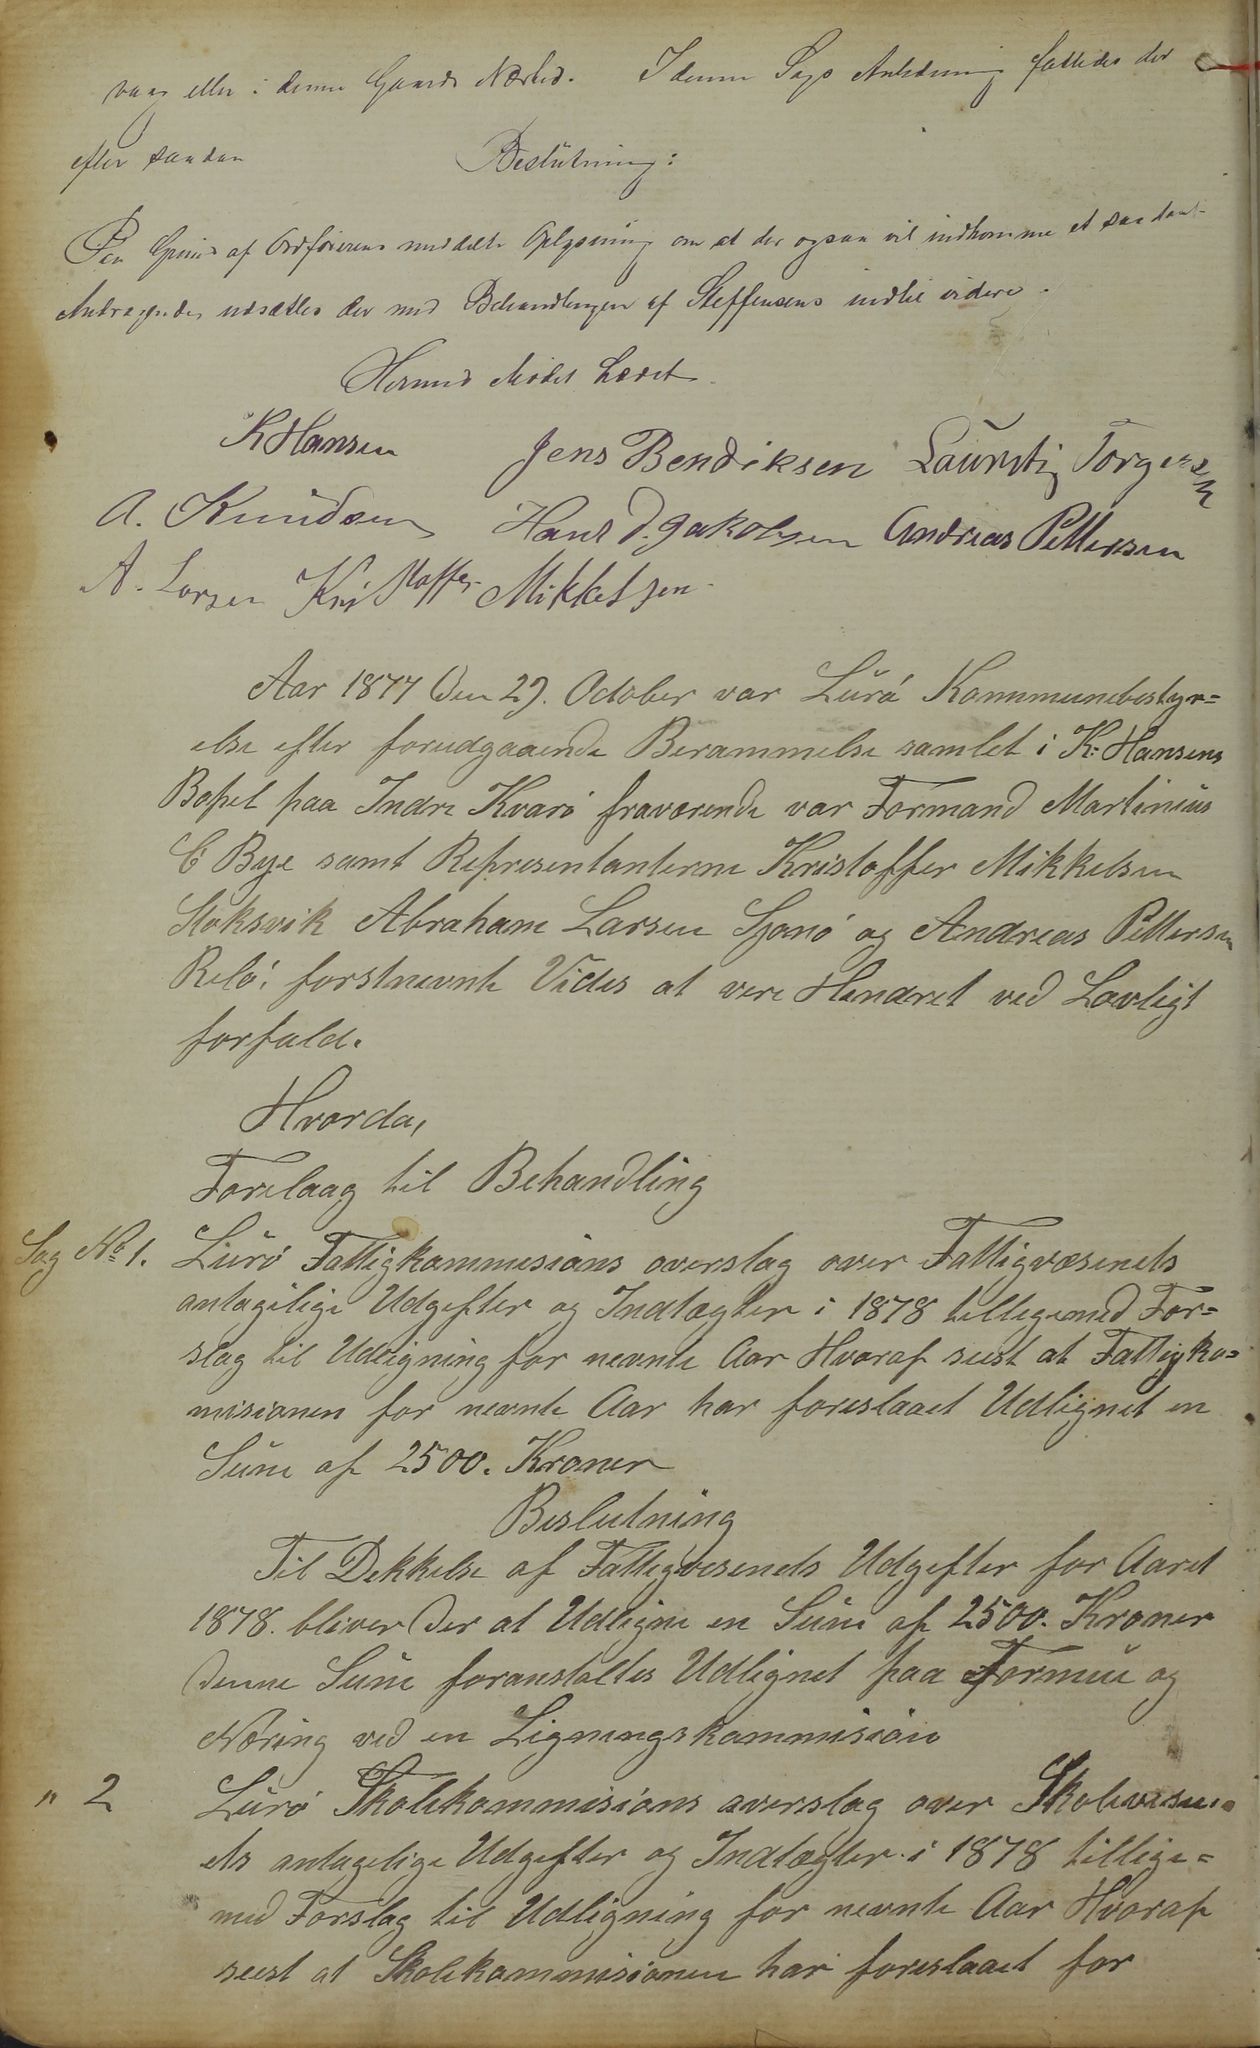 vaag eller i denne Gaards Nærhed. I denne Sags Anledning fattedes der
efter saadan Beslutning:
Paa Grund af Ordførerens meddelte Oplysning om at der ogsaa vil indkomme et saadant
Andragende, udsættes der med Behandlingen af Steffensens indtil videre.
Hermed Mødet hævet.
K Hansen Jens Bendiksen Lauritz Torgersen
A. Knudsen Hans D. Jakobsen Andreas Pettersen
A. Larsen Kristoffer Mikkelsen
Aar 1877 Den 29. October var Lurø Kommunebestyr=
else efter forudgaaende Berammelse samlet i K: Hansens
Bopel paa Indre Kvarø fraværende var Formand Martinius
C Bye samt Representanterne Kristoffer Mikkelsen
Stoksvik Abraham Larsen Sjonø og Andreas Pettersen
Relø: forstnevnte Vides at vere Hindret ved Lovligt
forfald.
Hvorda,
Forelaag til Behandling
Sag No 1. Lurø Fattigkommisions overslag over Fattigvæsenets
antagelige Udgifter og Indtægter i 1878 tilligemed For=
slag til Udligning for nevnte Aar Hvoraf seest at Fattigko=
misionen for nevnte Aar har foreslaaet Udlignet en
Sum af 2500. Kroner
Beslutning
Til Dekkelse af Fattigvesenets Udgifter for Aaret
1878. bliver Der at Udligne en Sum af 2500. Kroner
Denne Sum foranstaltes Udlignet paa Formue og
Næring ved en Ligningskommision
" 2 Lurø Skolekommisions overslag over Skolevesen=
ets antagelige Udgifter og Indtægter i 1878 tillige=
med Forslag til Udligning for nevnte Aar Hvoraf
seest at Skolekommisionen har foreslaaet for